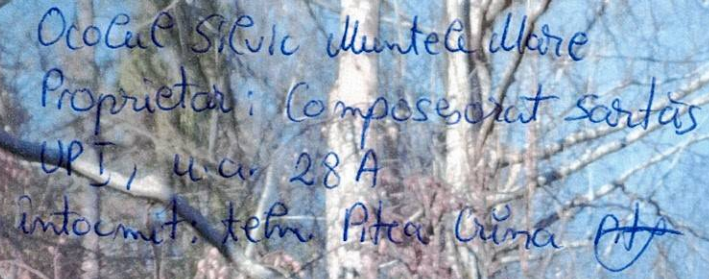 Ocolul Silvic Muntele Mare
Proprietar: Composesorat Sartăș
UPI, u.a. 28A
întocmit: tehn. Pitea Crina